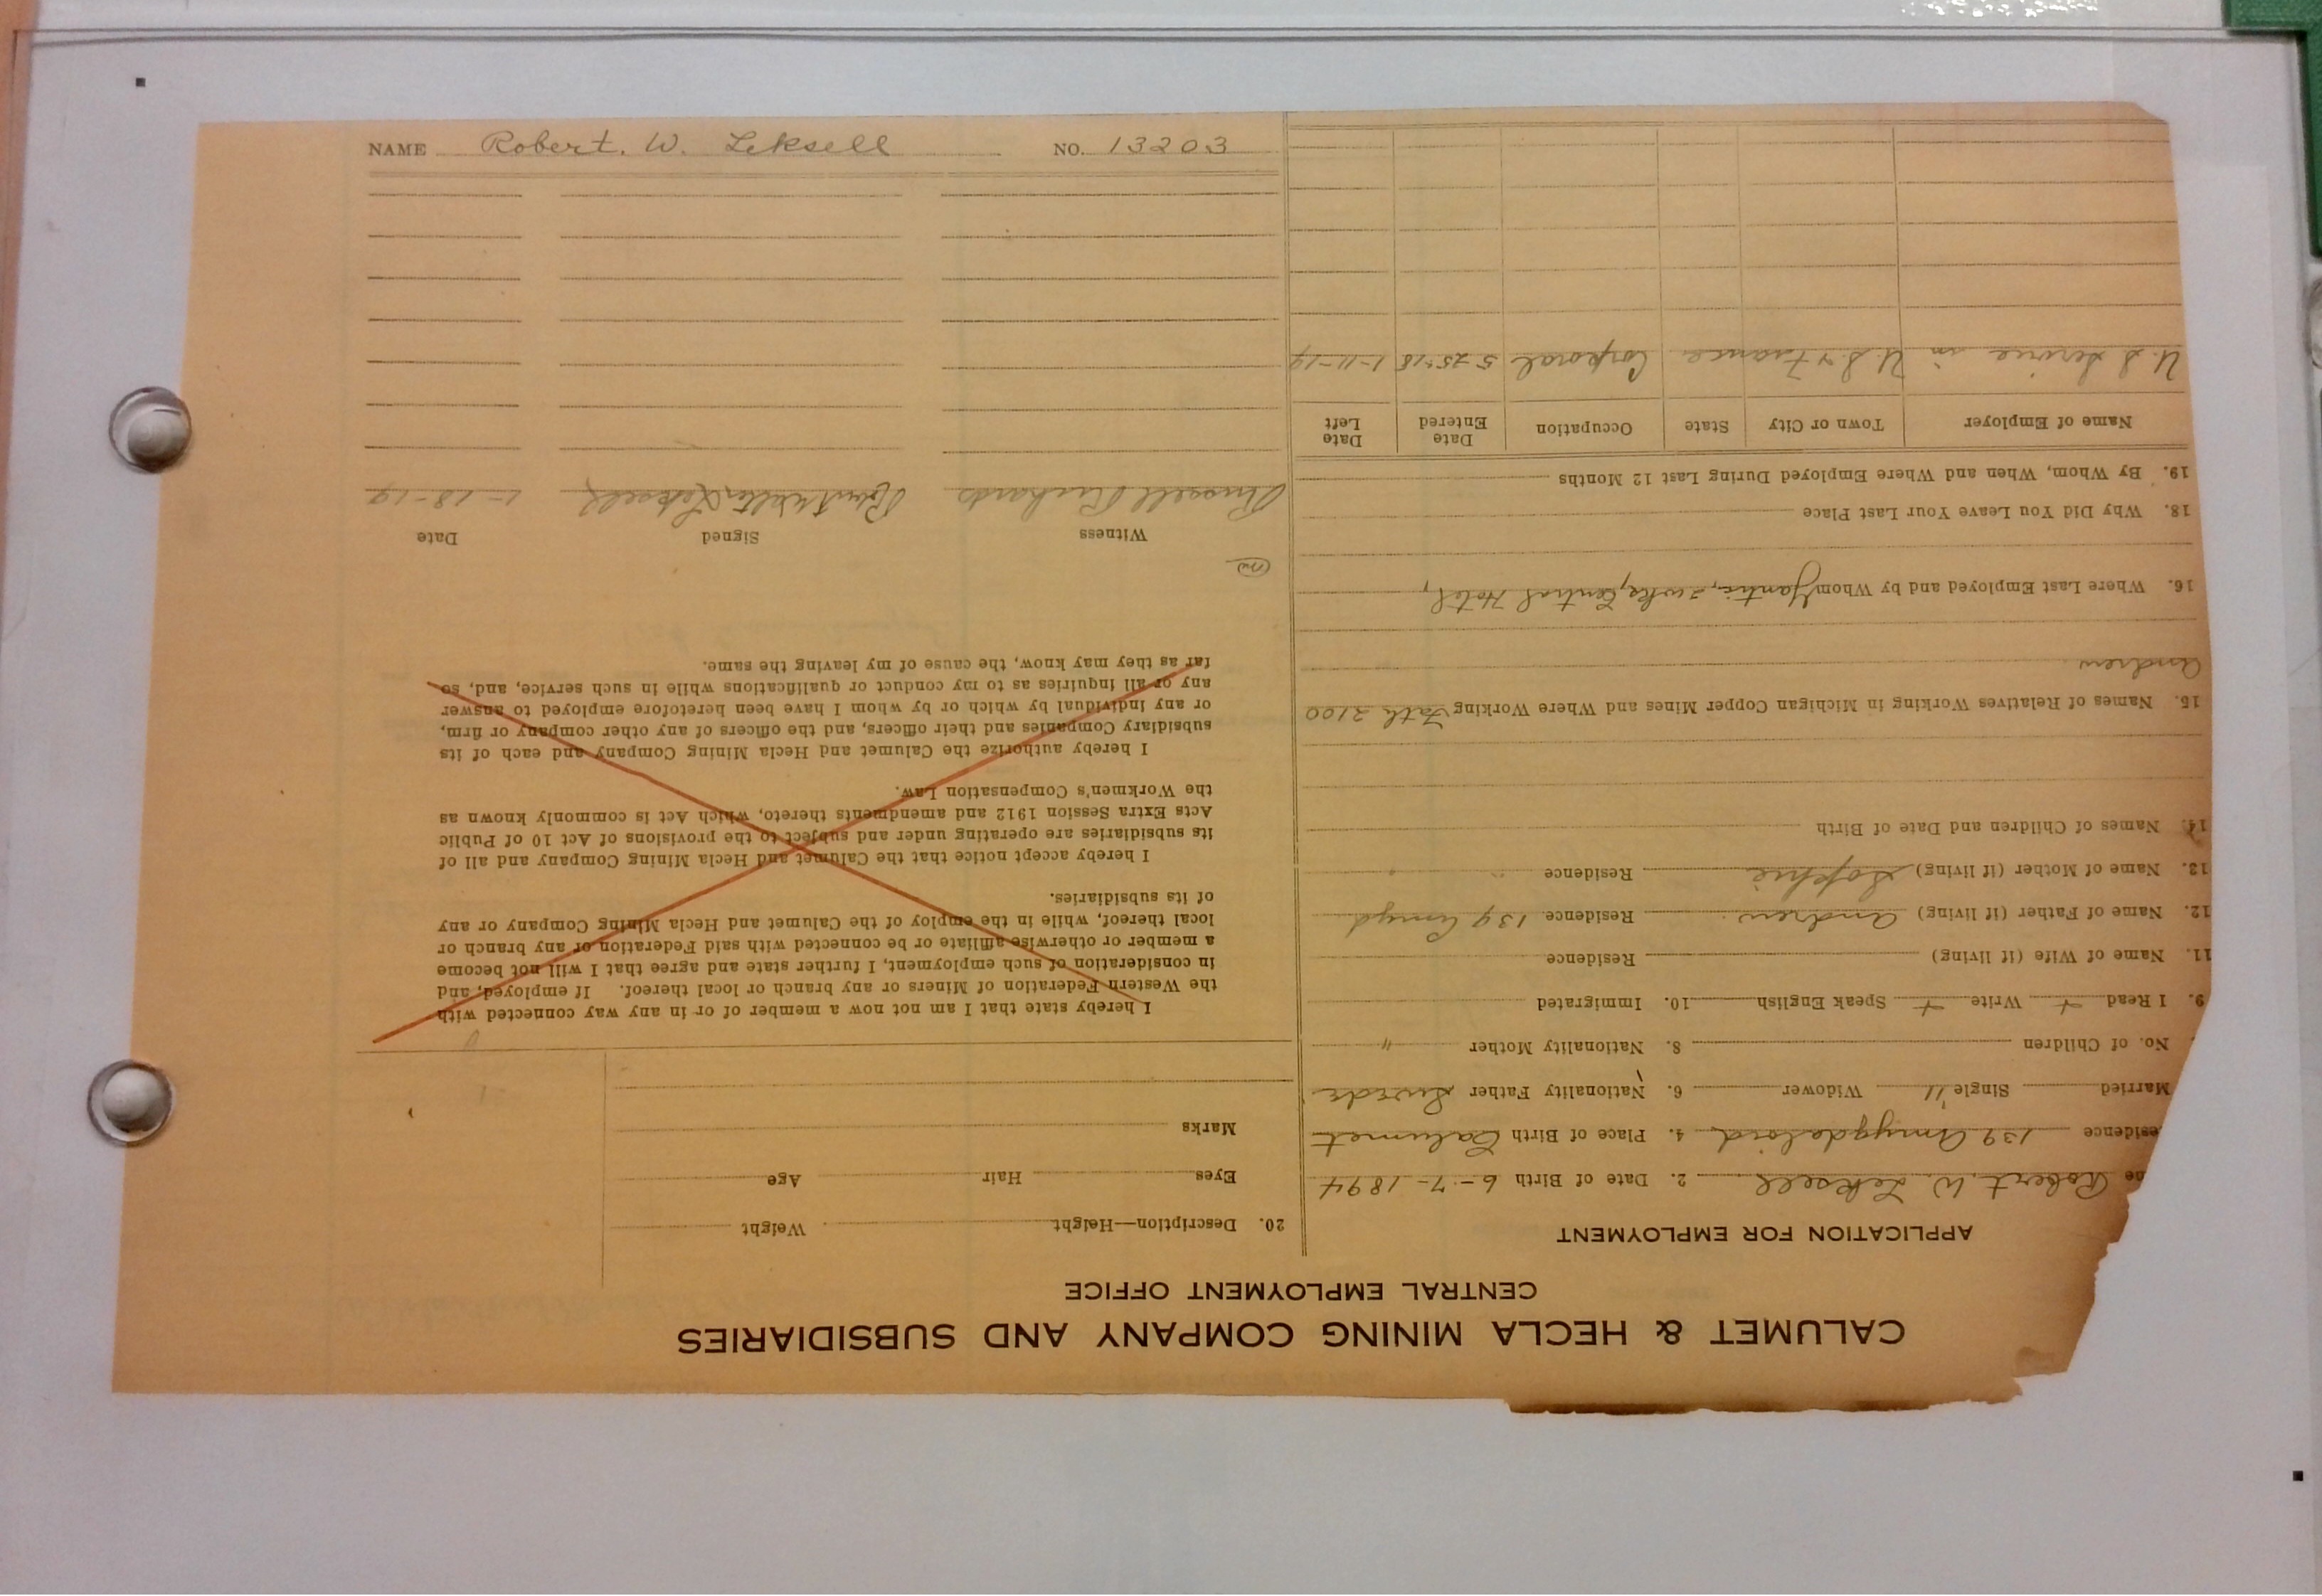 CALUMET & HECLA MINING COMPANY AND SUBSIDIARIES
CENTRAL EMPLOYMENT OFFICE
APPLICATION FOR EMPLOYMENT
Robert W. Leksell 2. Date of Birth 6-7-1894
esidence 139 Amygdaloid 4. Place of Birth Calumet
Married Single " Widower 6. Nationality Father Swede
No. of Children 8. Nationality Mother "
9. I Read + Write + Speak English 10. Immigrated
11. Name of Wife (if living) Residence
12. Name of Father (if living) Andrew Residence 139 Amygd
13. Name of Mother (if living) Sophie Residence " "
14. Names of Children and Date of Birth
15. Names of Relatives Working in Michigan Copper Mines and Where Working Fath 2100
Andrew
16. Where Last Employed and by Whom Central Hotel,
18. Why Did You Leave Your Last Place
19. By Whom, When and Where Employed During Last 12 Months
Name of Employer Town or City State Occupation Date Entered Date Left
U.S Service in U.S. + France Corporal 5-25-18 1-11-19
20. Description—Height Weight
Eyes Hair Age
Marks
I hereby state that I am not now a member of or in any way connected with
the Western Federation of Miners or any branch or local thereof. If employed, and
in consideration of such employment, I further state and agree that I will not become
a member or otherwise affiliate or be connected with said Federation or any branch or
local thereof, while in the employ of the Calumet and Hecla Mining Company or any
of its subsidiaries.
I hereby accept notice that the Calumet and Hecla Mining Company and all of
its subsidiaries are operating under and subject to the provisions of Act 10 of Public
Acts Extra Session 1912 and amendments thereto, which Act is commonly known as
the Workmen's Compensation Law.
I hereby authorize the Calumet and Hecla Mining Company and each of its
subsidiary Companies and their officers, and the officers of any other company or firm,
or any individual by which or by whom I have been heretofore employed to answer
any or all inquiries as to my conduct or qualifications while in such service, and, so
far as they may know, the cause of my leaving the same.
Witness Signed Date
Russell Richards Robert Walter Leksell 1-18-19
NAME Robert. W. Leksell NO. 13203